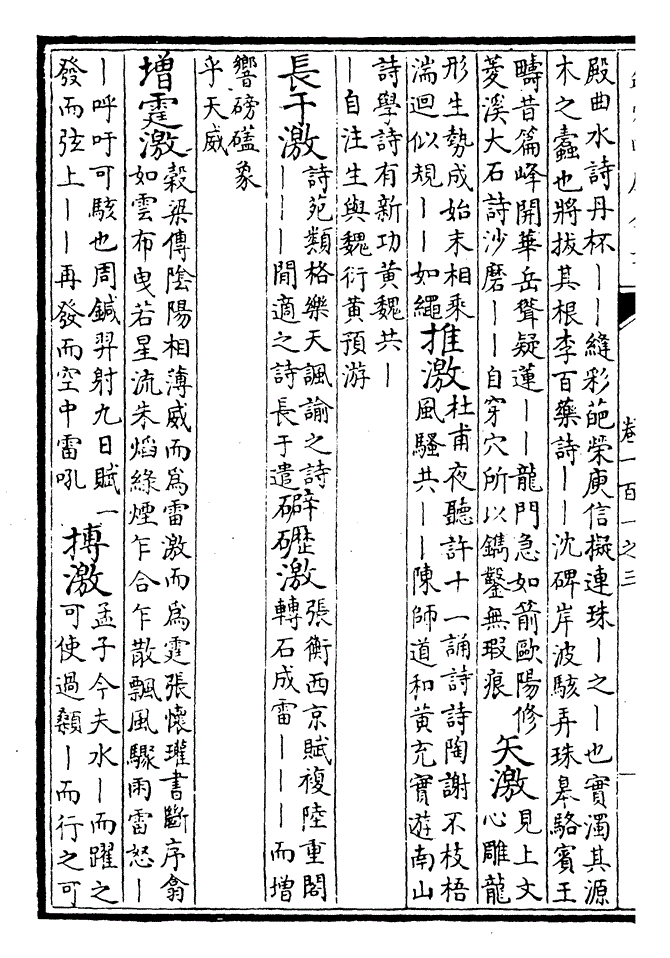 卷一百一之三
殿曲水詩丹杯——縫彩葩榮庾信擬連珠—之—也實濁其源
木之蠹也將拔其根李百藥詩——沈碑岸波駭弄珠皋駱賓王
疇昔篇峰開華岳聳疑蓮——龍門急如箭歐陽修
菱溪大石詩沙磨——自穿穴所以鐫鑿無瑕痕
矢激
見上文
心雕龍
形生勢成始末相乘
湍迴似規——如繩
推激
杜甫夜聽許十一誦詩詩陶謝不枝梧
風騷共——陳師道和黃充實遊南山
詩學詩有新功黃魏共—
—自注生與魏衍黃預游
長于激
詩苑類格樂天諷諭之詩
———閒適之詩長于遣
礔礰激
張衡西京賦複陸重閣
轉石成雷———而增
響磅礚象
乎天威
增霆激
穀梁傳陰陽相薄威而為雷激而為霆張懷瓘書斷序翕
如雲布曳若星流朱焰綠煙乍合乍散飄風驟雨雷怒—
—呼吁可駭也周鍼羿射九日賦一
發而弦上——再發而空中雷吼
搏激
孟子今夫水—而躍之
可使過顙—而行之可